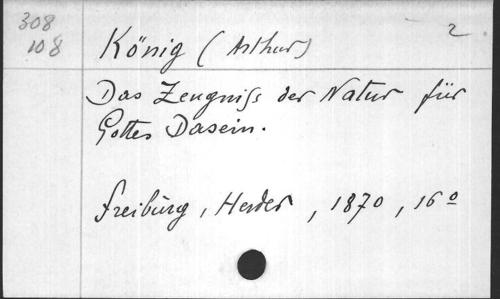 308
108
König (Arthur)
2
Das Zeugniſs der Natur für
Gottes Dasein.
Freiburg, Herder, 1870, 16º